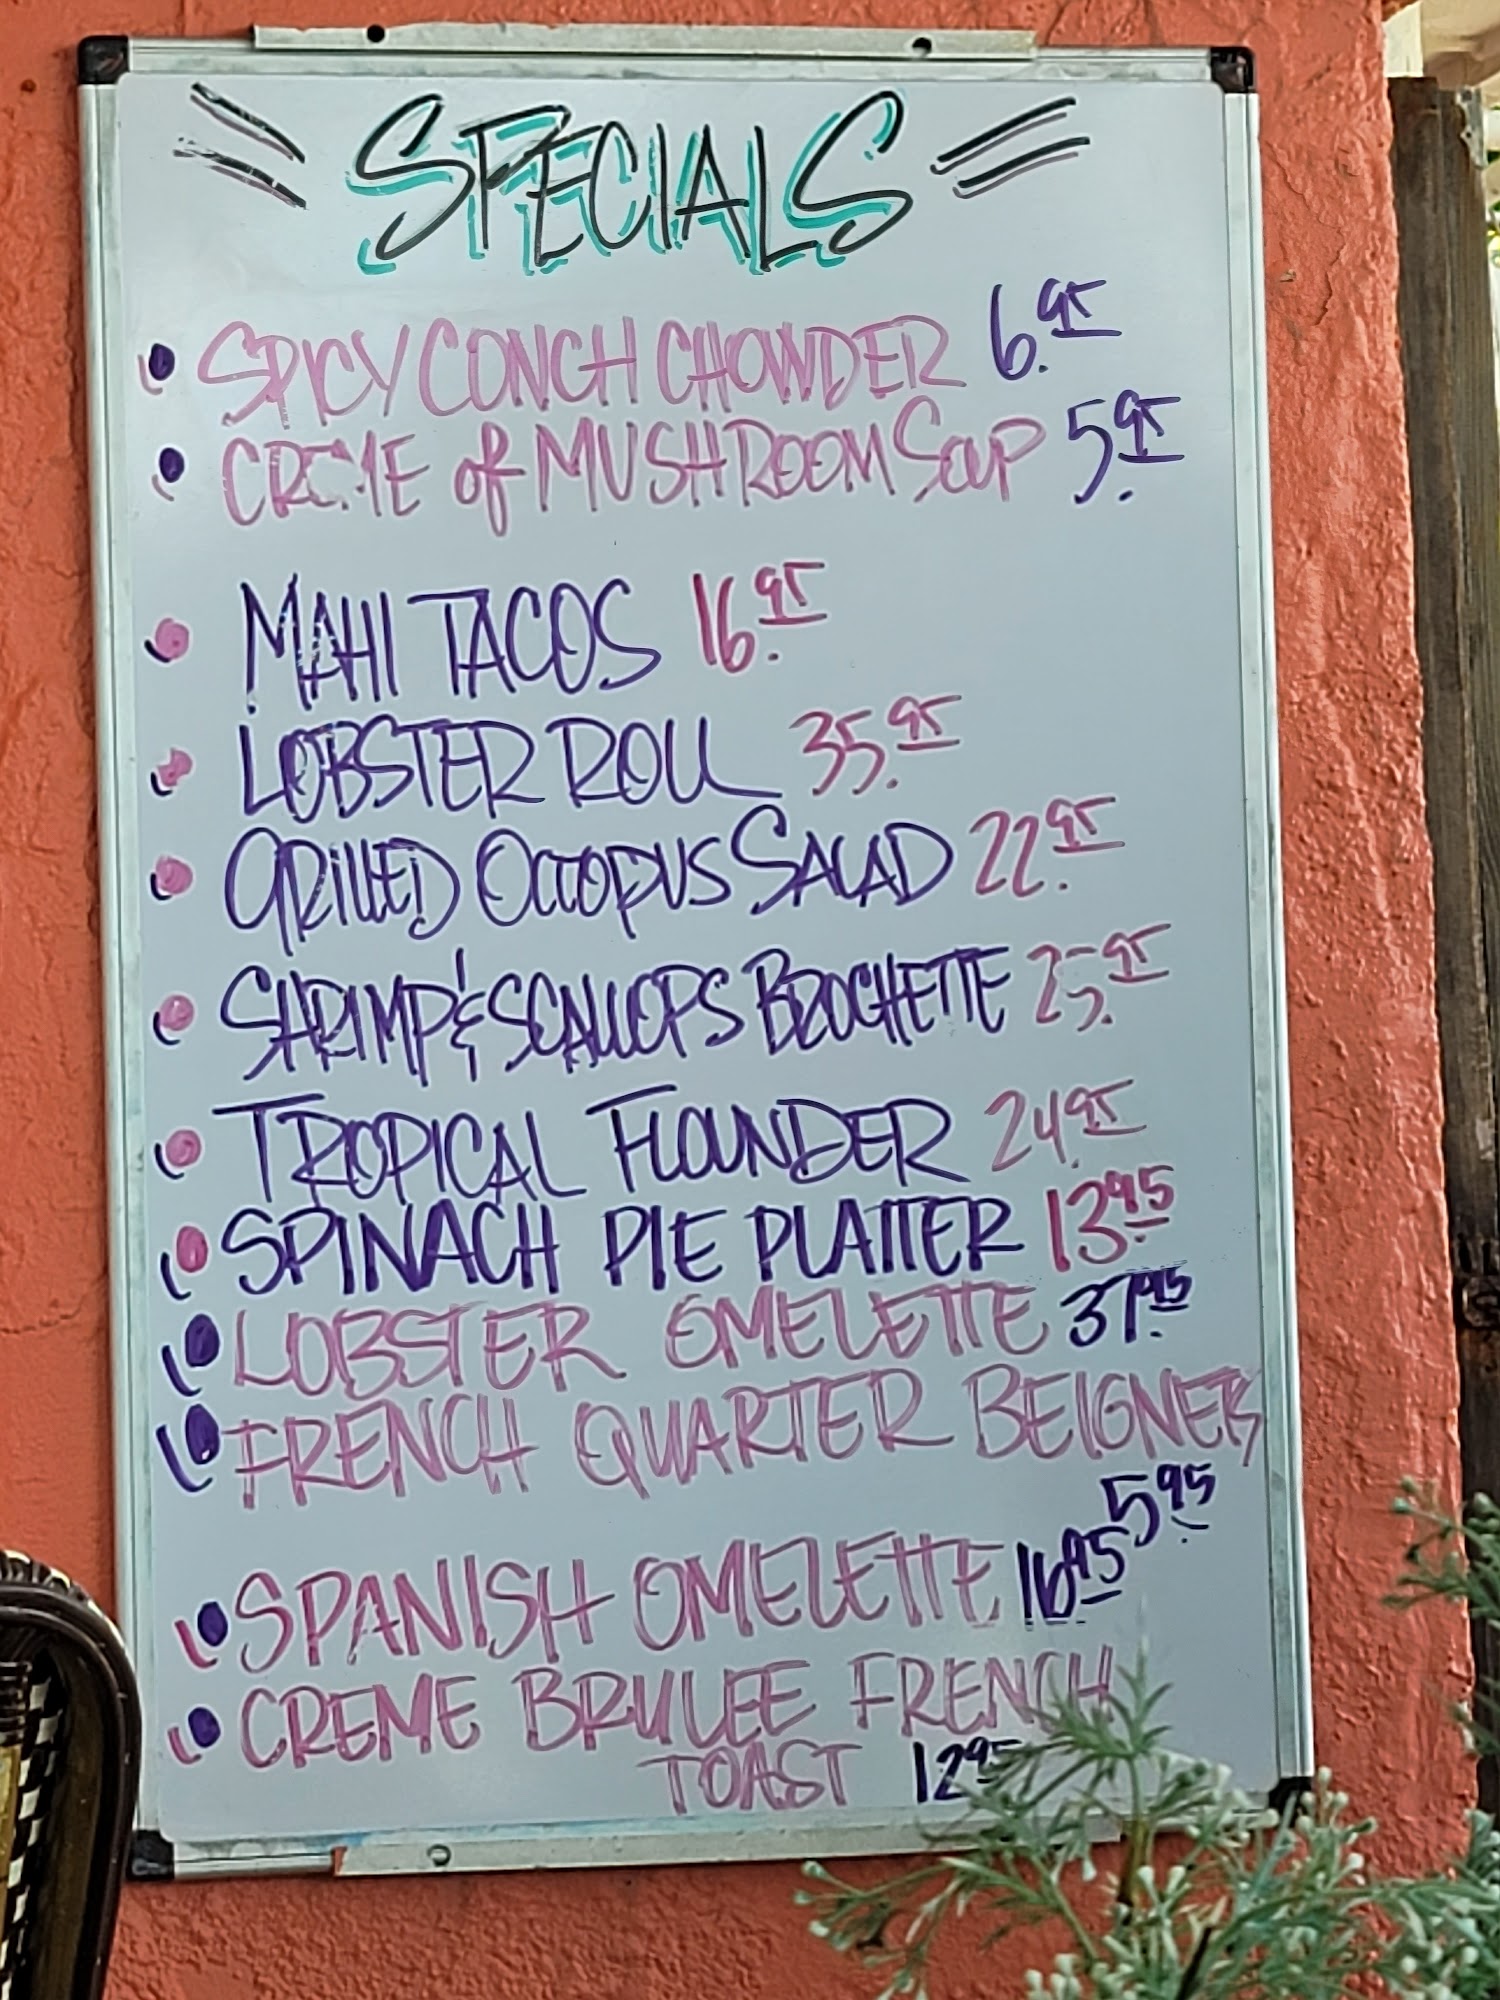 SPECIALS
• SPICY CONCH CHOWDER 6.95
• CREME of MUSHROOM SOUP 5.95
• MAHI TACOS 16.95
• LOBSTER ROLL 35.95
• GRILLED OCTOPUS SALAD 22.95
• SHRIMP & SCALLOPS BROCHETTE 25.95
• TROPICAL FLOUNDER 24.95
• SPINACH PIE PLATTER 13.95
• LOBSTER OMELETTE 37.95
• FRENCH QUARTER BEIGNETS
5.95
• SPANISH OMELETTE 16.95
• CREME BRULEE FRENCH
TOAST 12.95